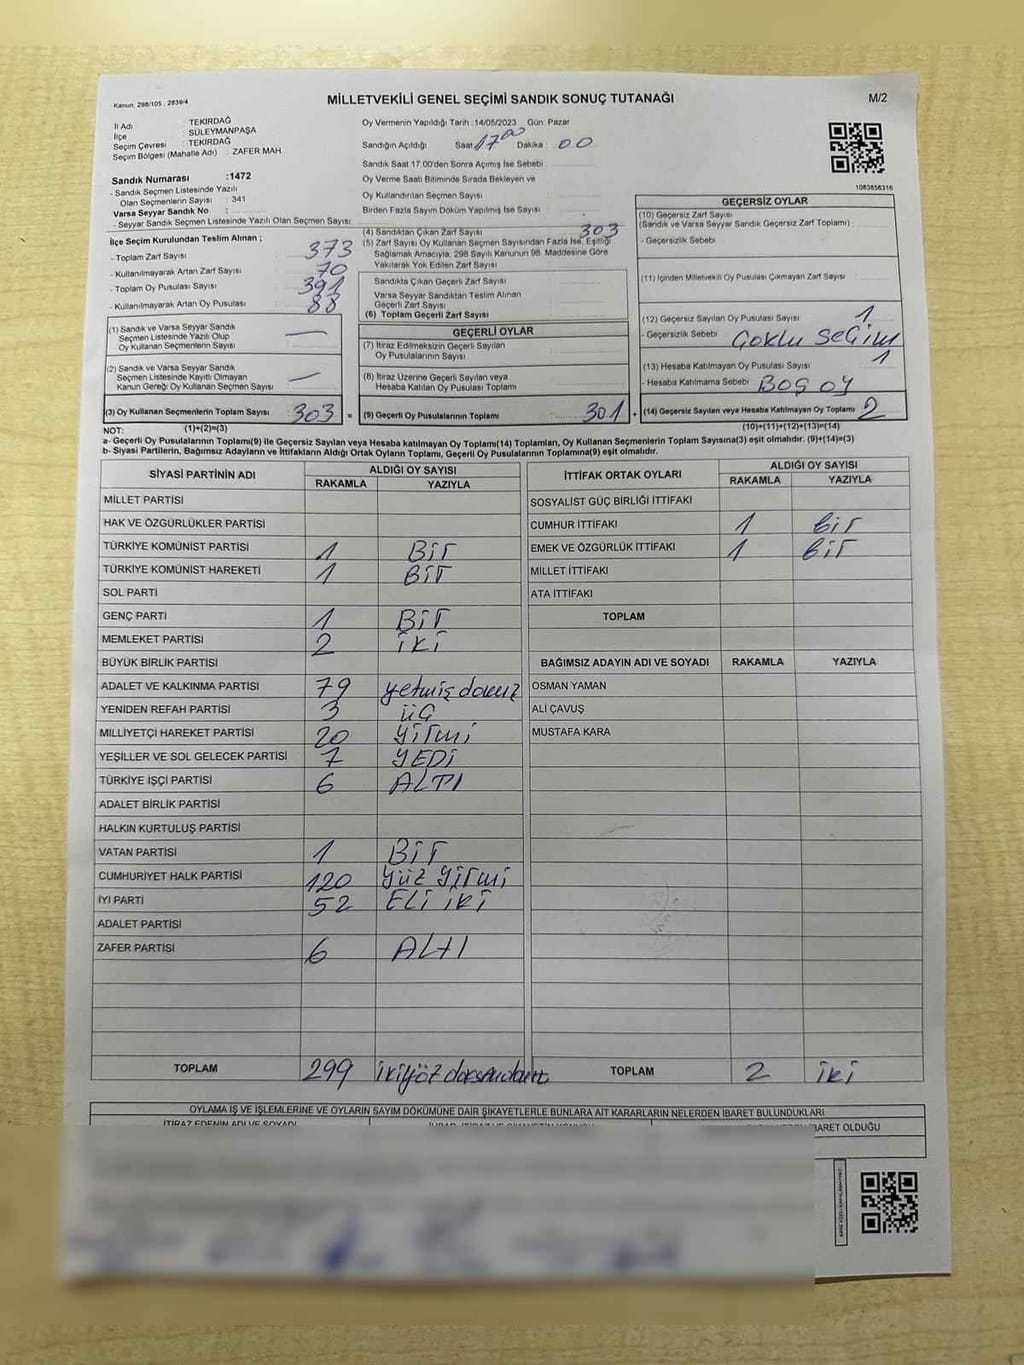 Kanun: 298/105, 2839/4
MİLLETVEKİLİ GENEL SEÇİMİ SANDIK SONUÇ TUTANAĞI
M/2
İl Adı : TEKİRDAĞ
İlçe : SÜLEYMANPAŞA
Seçim Çevresi : TEKİRDAĞ
Seçim Bölgesi (Mahalle Adı) : ZAFER MAH
Sandık Numarası :1472
- Sandık Seçmen Listesinde Yazılı
Olan Seçmenlerin Sayısı : 341
Varsa Seyyar Sandık No :
- Seyyar Sandık Seçmen Listesinde Yazılı Olan Seçmen Sayısı:
Oy Vermenin Yapıldığı Tarih :14/05/2023 Gün: Pazar
Sandığın Açıldığı Saat 17.00 Dakika : 00
Sandık Saat 17.00'den Sonra Açılmış İse Sebebi
Oy Verme Saati Bitiminde Sırada Bekleyen ve
Oy Kullandırılan Seçmen Sayısı
Birden Fazla Sayım Döküm Yapılmış İse Sayısı
1083856316
İlçe Seçim Kurulundan Teslim Alınan ;
- Toplam Zarf Sayısı 373
- Kullanılmayarak Artan Zarf Sayısı 70
- Toplam Oy Pusulası Sayısı 391
- Kullanılmayarak Artan Oy Pusulası 88
(1) Sandık ve Varsa Seyyar Sandık
Seçmen Listesinde Yazılı Olup
Oy Kullanan Seçmenlerin Sayısı —
(2) Sandık ve Varsa Seyyar Sandık
Seçmen Listesinde Kayıtlı Olmayan
Kanun Gereği Oy Kullanan Seçmen Sayısı —
(3) Oy Kullanan Seçmenlerin Toplam Sayısı : 303 =
(1)+(2)=(3)
(4) Sandıktan Çıkan Zarf Sayısı 303
(5) Zarf Sayısı Oy Kullanan Seçmen Sayısından Fazla İse, Eşitliği
Sağlamak Amacıyla, 298 Sayılı Kanunun 98. Maddesine Göre
Yakılarak Yok Edilen Zarf Sayısı
Sandıkta Çıkan Geçerli Zarf Sayısı
Varsa Seyyar Sandıktan Teslim Alınan
Geçerli Zarf Sayısı
(6) Toplam Geçerli Zarf Sayısı
GEÇERLİ OYLAR
(7) İtiraz Edilmeksizin Geçerli Sayılan
Oy Pusulalarının Sayısı
(8) İtiraz Üzerine Geçerli Sayılan veya
Hesaba Katılan Oy Pusulası Toplamı
(9) Geçerli Oy Pusulalarının Toplamı 301 +
GEÇERSİZ OYLAR
(10) Geçersiz Zarf Sayısı
(Sandık ve Varsa Seyyar Sandık Geçersiz Zarf Toplamı)
- Geçersizlik Sebebi
(11) İçinden Milletvekili Oy Pusulası Çıkmayan Zarf Sayısı
(12) Geçersiz Sayılan Oy Pusulası Sayısı : 1
- Geçersizlik Sebebi : Çoklu Seçim
(13) Hesaba Katılmayan Oy Pusulası Sayısı : 1
- Hesaba Katılmama Sebebi : BOŞ OY
(14) Geçersiz Sayılan veya Hesaba Katılmayan Oy Toplamı : 2
(10)+(11)+(12)+(13)=(14)
NOT:
a- Geçerli Oy Pusulalarının Toplamı(9) ile Geçersiz Sayılan veya Hesaba katılmayan Oy Toplamı(14) Toplamları, Oy Kullanan Seçmenlerin Toplam Sayısına(3) eşit olmalıdır. (9)+(14)=(3)
b- Siyasi Partilerin, Bağımsız Adayların ve İttifakların Aldığı Ortak Oyların Toplamı, Geçerli Oy Pusulalarının Toplamına(9) eşit olmalıdır.
SİYASİ PARTİNİN ADI ALDIĞI OY SAYISI
RAKAMLA YAZIYLA
MİLLET PARTİSİ
HAK VE ÖZGÜRLÜKLER PARTİSİ
TÜRKİYE KOMÜNİST PARTİSİ 1 BİR
TÜRKİYE KOMÜNİST HAREKETİ 1 BİR
SOL PARTİ
GENÇ PARTİ 1 BİR
MEMLEKET PARTİSİ 2 iKi
BÜYÜK BİRLİK PARTİSİ
ADALET VE KALKINMA PARTİSİ 79 yetmiş dokuz
YENİDEN REFAH PARTİSİ 3 ÜÇ
MİLLİYETÇİ HAREKET PARTİSİ 20 yirmi
YEŞİLLER VE SOL GELECEK PARTİSİ 7 YEDİ
TÜRKİYE İŞÇİ PARTİSİ 6 ALTI
ADALET BİRLİK PARTİSİ
HALKIN KURTULUŞ PARTİSİ
VATAN PARTİSİ 1 BİR
CUMHURİYET HALK PARTİSİ 120 yüz yirmi
İYİ PARTİ 52 ELi iKi
ADALET PARTİSİ
ZAFER PARTİSİ 6 ALTI
TOPLAM 299
İTTİFAK ORTAK OYLARI ALDIĞI OY SAYISI
RAKAMLA YAZIYLA
SOSYALİST GÜÇ BİRLİĞİ İTTİFAKI
CUMHUR İTTİFAKI 1 Bir
EMEK VE ÖZGÜRLÜK İTTİFAKI 1 Bir
MİLLET İTTİFAKI
ATA İTTİFAKI
TOPLAM
BAĞIMSIZ ADAYIN ADI VE SOYADI RAKAMLA YAZIYLA
OSMAN YAMAN
ALİ ÇAVUŞ
MUSTAFA KARA
TOPLAM 2 iki
OYLAMA İŞ VE İŞLEMLERİNE VE OYLARIN SAYIM DÖKÜMÜNE DAİR ŞİKAYETLERLE BUNLARA AİT KARARLARIN NELERDEN İBARET BULUNDUKLARI
İTİRAZ EDENİN ADI VE SOYADI
İBARET OLDUĞU